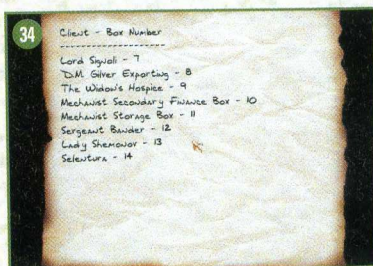 34
Client - Box Number
--------------------
Lord Signoli - 7
D.M. Gilver Exporting - 8
The Widow's Hospice - 9
Mechanist Secondary Finance Box - 10
Mechanist Storage Box - 11
Sergeant Bander - 12
Lady Shemonov - 13
Selentura - 14